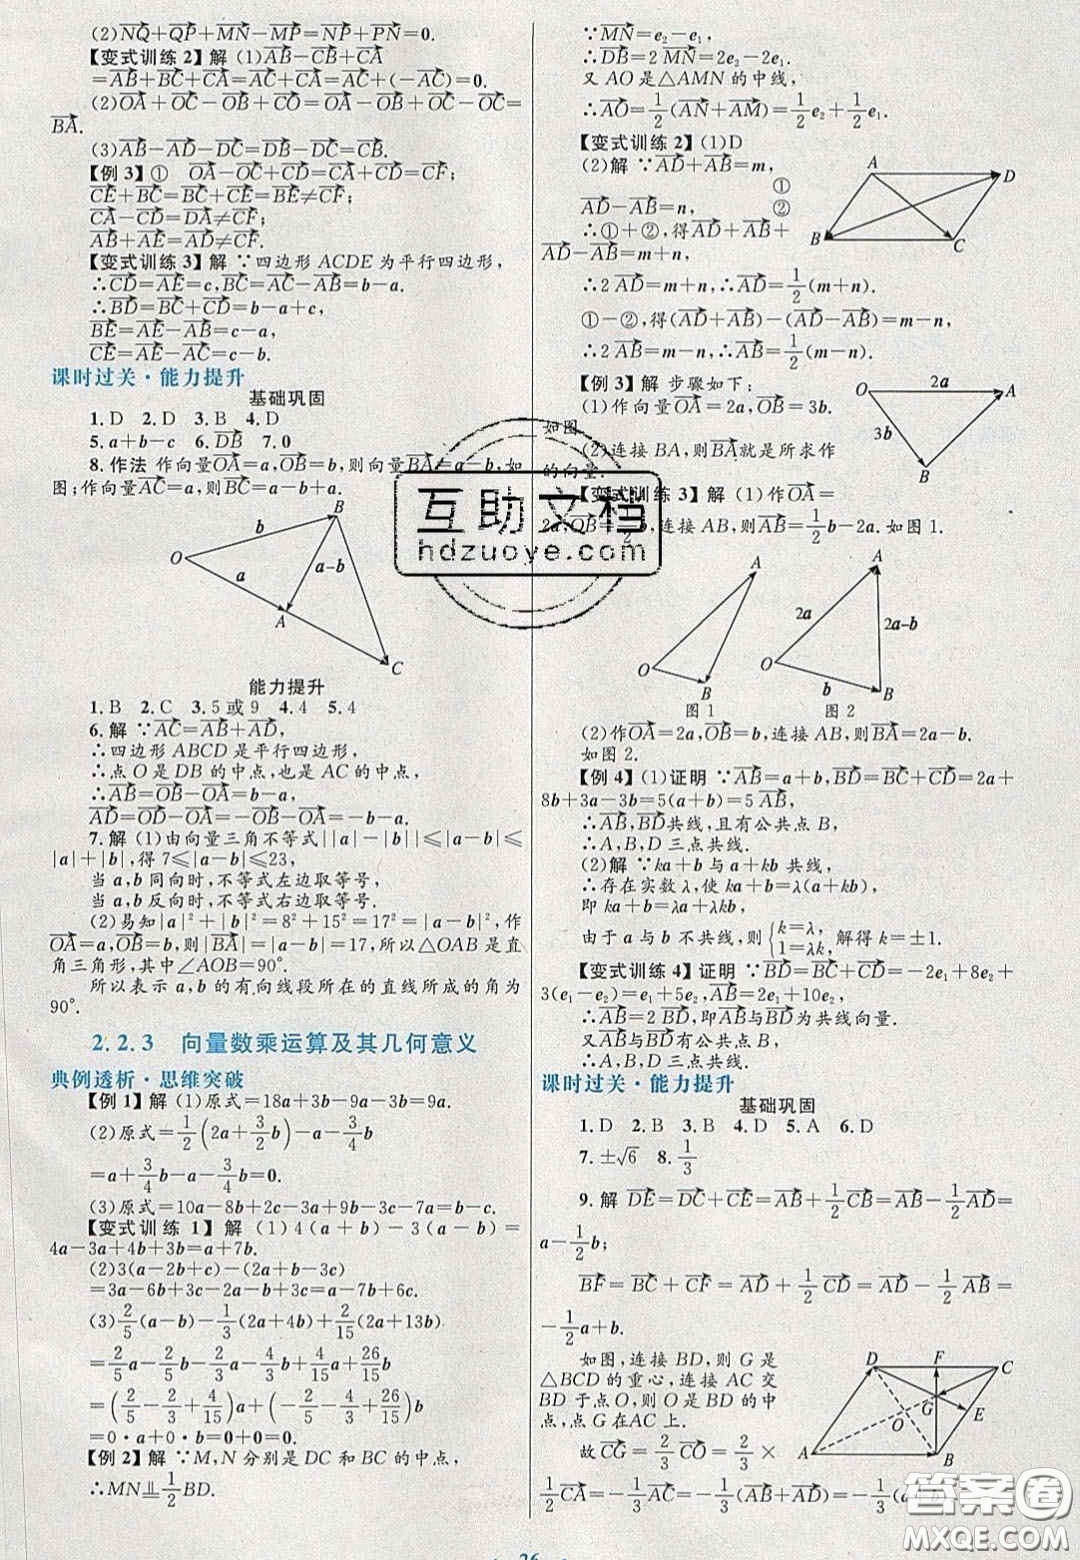 (2)NQ+QP+MN-MP=NP+PN=0.
【变式训练2】解 (1)AB-CB+CA
=AB+BC+CA=AC+CA=AC+(-AC)=0.
(2)OA+OC-OB+CO=OA-OB+OC-OC=
BA.
(3)AB-AD-DC=DB-DC=CB.
【例3】① OA-OC+CD=CA+CD=CF;
CE+BC=BC+CE=BE≠CF;
CA-CD=DA≠CF;
AB+AE=AD≠CF.
【变式训练3】解 ∵四边形ACDE为平行四边形,
∴CD=AE=c,BC=AC-AB=b-a,
∴BD=BC+CD=b-a+c,
BE=AE-AB=c-a,
CE=AE-AC=c-b.
课时过关·能力提升
基础巩固
1.D 2.D 3.B 4.D
5.a+b-c 6.DB 7.0
8.作法 作向量OA=a,OB=b,则向量BA=a-b,如
图;作向量AC=a,则BC=a-b-a.
O
b
B
a
a-b
A
C
能力提升
1.B 2.C 3.5或9 4.4 5.4
6.解 ∵AC=AB+AD,
∴四边形ABCD是平行四边形,
∴点O是DB的中点,也是AC的中点,
∴AB=OB-OA=b-a,
AD=OD-OA=-OB-OA=-b-a.
7.解 (1)由向量三角不等式||a|-|b||≤|a-b|≤
|a|+|b|,得7≤|a-b|≤23,
当a,b同向时,不等式左边取等号,
当a,b反向时,不等式右边取等号.
(2)易知|a|²+|b|²=8²+15²=17²=|a-b|²,作
OA=a,OB=b,则|BA|=|a-b|=17,所以△OAB是直
角三角形,其中∠AOB=90°.
所以表示a,b的有向线段所在的直线所成的角为
90°.
2.2.3 向量数乘运算及其几何意义
典例透析·思维突破
【例1】解 (1)原式=18a+3b-9a-3b=9a.
(2)原式=1/2(2a+3/2b)-a-3/4b
=a+3/4b-a-3/4b=0.
(3)原式=10a-8b+2c-3a+9b-3c-7a=b-c.
【变式训练1】解 (1)4(a+b)-3(a-b)=
4a-3a+4b+3b=a+7b.
(2)3(a-2b+c)-(2a+b-3c)
=3a-6b+3c-2a-b+3c=a-7b+6c.
(3)2/5(a-b)-1/3(2a+4b)+2/15(2a+13b)
=2/5a-2/5b-2/3a-4/3b+4/15a+26/15b
=(2/5-2/3+4/15)a+(-2/5-4/3+26/15)b
=0·a+0·b=0+0=0.
【例2】解 ∵M,N分别是DC和BC的中点,
∴MN⫫1/2BD.
∵MN=e₂-e₁,
∴DB=2MN=2e₂-2e₁.
又AO是△AMN的中线,
∴AO=1/2(AN+AM)=1/2e₂+1/2e₁.
【变式训练2】(1)D
(2)解 ∵AD+AB=m, ①
AD-AB=n, ②
∴①+②,得AD+AB+
AD-AB=m+n,
A
D
B
C
∴2AD=m+n,∴AD=1/2(m+n).
①-②,得(AD+AB)-(AD-AB)=m-n,
∴2AB=m-n,∴AB=1/2(m-n).
【例3】解 步骤如下:
(1)作向量OA=2a,OB=3b.
如图.
(2)连接BA,则BA就是所求作
的向量.
O
2a
A
3b
B
【变式训练3】解 (1)作OA=
2a,OB=1/2b,连接AB,则BA=1/2b-2a.如图1.
A
O
B
图1
A
2a
2a-b
O
b
B
图2
(2)作OA=2a,OB=b,连接AB,则BA=2a-b.
如图2.
【例4】(1)证明 ∵AB=a+b,BD=BC+CD=2a+
8b+3a-3b=5(a+b)=5AB,
∴AB,BD共线,且有公共点B,
∴A,B,D三点共线.
(2)解 ∵ka+b与a+kb共线,
∴存在实数λ,使ka+b=λ(a+kb),
即ka+b=λa+λkb,
由于a与b不共线,则{k=λ, 1=λk, 解得k=±1.
【变式训练4】证明 ∵BD=BC+CD=-2e₁+8e₂+
3(e₁-e₂)=e₁+5e₂,AB=2e₁+10e₂,
∴AB=2BD,即AB与BD为共线向量.
又AB与BD有公共点B,
∴A,B,D三点共线.
课时过关·能力提升
基础巩固
1.D 2.B 3.B 4.D 5.A 6.D
7.±√6 8.1/3
9.解 DE=DC+CE=AB+1/2CB=AB-1/2AD=
a-1/2b;
BF=BC+CF=AD+1/2CD=AD-1/2AB=b
-1/2a+b.
如图,连接BD,则G是
△BCD的重心,连接AC交
BD于点O,则O是BD的中
点,点G在AC上.
D
F
C
G
E
O
A
B
故CG=2/3CO=2/3×
1/2CA=-1/3AC=-1/3(AB+AD)=-1/3(a
26
互助文档
hdzuoye.com
答案圈
MXQE.COM